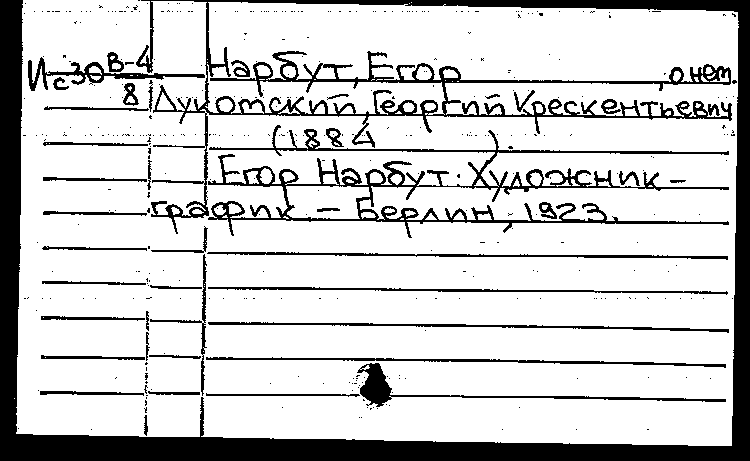 Ис30 В-4/8 Нарбут, Егор, о нем.
Лукомский, Георгий Крескентьевич
(1884 ).
Егор Нарбут. Художник-
график. – Берлин, 1923.